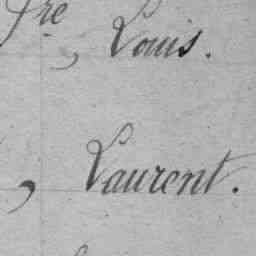 fre
, Louis.
, Laurent.